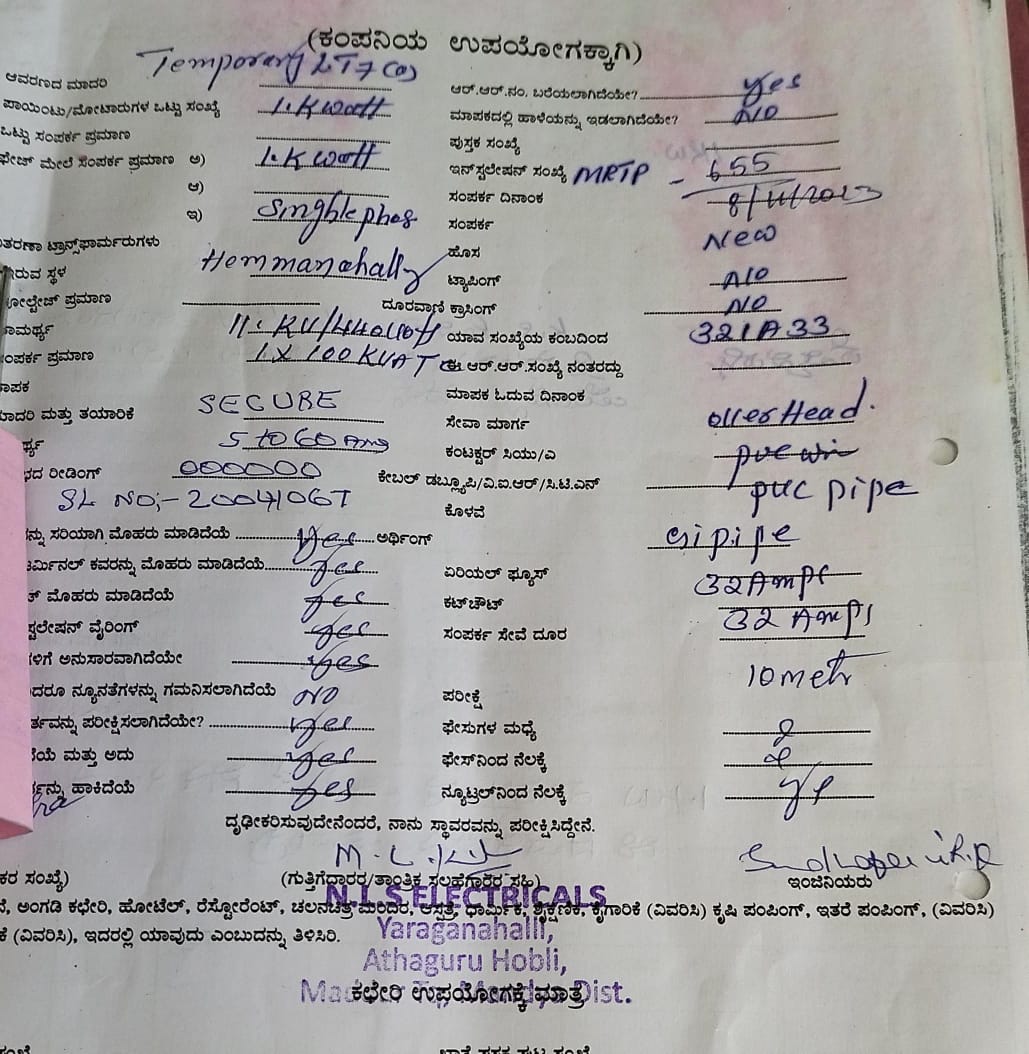 (ಕಂಪನಿಯ ಉಪಯೋಗಕ್ಕಾಗಿ)
ಆವರಣದ ಮಾದರಿ Temporary LT7(a) ಆರ್.ಆರ್.ನಂ. ಬರೆಯಲಾಗಿದೆಯೇ? yes
ಪಾಯಿಂಟು/ಮೋಟಾರುಗಳ ಒಟ್ಟು ಸಂಖ್ಯೆ 1.K watt ಮಾಪಕದಲ್ಲಿ ಹಾಳೆಯನ್ನು ಇಡಲಾಗಿದೆಯೇ? NO
ಒಟ್ಟು ಸಂಪರ್ಕ ಪ್ರಮಾಣ ಪುಸ್ತಕ ಸಂಖ್ಯೆ
ಫೇಜ್ ಮೇಲೆ ಸಂಪರ್ಕ ಪ್ರಮಾಣ ಅ) 1.K watt ಇನ್‌ಸ್ಟಲೇಷನ್ ಸಂಖ್ಯೆ MRTP - 655
ಆ) ಸಂಪರ್ಕ ದಿನಾಂಕ 8/11/2023
ಇ) Singhle phas ಸಂಪರ್ಕ
ತರಣಾ ಟ್ರಾನ್ಸ್‌ಫಾರ್ಮರುಗಳು ಹೊಸ New
ಇರುವ ಸ್ಥಳ Hemmanahally ಟ್ಯಾಪಿಂಗ್ NO
ವೋಲ್ಟೇಜ್ ಪ್ರಮಾಣ ದೂರವಾಣಿ ಕ್ರಾಸಿಂಗ್ NO
ಸಾಮರ್ಥ್ಯ 11.KV/440 ಯಾವ ಸಂಖ್ಯೆಯ ಕಂಬದಿಂದ 321A33
ಸಂಪರ್ಕ ಪ್ರಮಾಣ 1X100KVA ಈ ಆರ್.ಆರ್.ಸಂಖ್ಯೆ ನಂತರದ್ದು
ಮಾಪಕ ಮಾಪಕ ಓದುವ ದಿನಾಂಕ
ಮಾದರಿ ಮತ್ತು ತಯಾರಿಕೆ SECURE ಸೇವಾ ಮಾರ್ಗ over Head.
ರ್ಥ್ಯ 5 to 60 Am ಕಂಟಕ್ಟರ್ ಸಿಯು/ಎ pvc wi
ಭದ ರೀಡಿಂಗ್ 000000 ಕೇಬಲ್ ಡಬ್ಲ್ಯೂಪಿ/ವಿ.ಐ.ಆರ್/ಸಿ.ಟಿ.ಎನ್
SL NO;- 20041067 ಕೊಳವೆ puc pipe
ನ್ನು ಸರಿಯಾಗಿ ಮೊಹರು ಮಾಡಿದೆಯೆ Yes ಅರ್ಥಿಂಗ್ Gi pipe
ರ್ಮಿನಲ್ ಕವರನ್ನು ಮೊಹರು ಮಾಡಿದೆಯೆ yes ಏರಿಯಲ್ ಫ್ಯೂಸ್ 32 Amps
ತ್ ಮೊಹರು ಮಾಡಿದೆಯೆ yes ಕಟ್‌ಔಟ್ 32 Amps
ಸ್ಟಲೇಷನ್ ವೈರಿಂಗ್ yes ಸಂಪರ್ಕ ಸೇವೆ ದೂರ
ಳಿಗೆ ಅನುಸಾರವಾಗಿದೆಯೇ yes 10 metr
ದರೂ ನ್ಯೂನತೆಗಳನ್ನು ಗಮನಿಸಲಾಗಿದೆಯೆ NO ಪರೀಕ್ಷೆ
ರ್ತವನ್ನು ಪರೀಕ್ಷಿಸಲಾಗಿದೆಯೇ? yes ಫೇಸುಗಳ ಮಧ್ಯೆ
ಯೆ ಮತ್ತು ಅದು yes ಫೇಸ್‌ನಿಂದ ನೆಲಕ್ಕೆ
ನ್ನು ಹಾಕಿದೆಯೆ yes ನ್ಯೂಟ್ರಲ್‌ನಿಂದ ನೆಲಕ್ಕೆ
ದೃಢೀಕರಿಸುವುದೇನೆಂದರೆ, ನಾನು ಸ್ಥಾವರವನ್ನು ಪರೀಕ್ಷಿಸಿದ್ದೇನೆ.
ಕರ ಸಂಖ್ಯೆ) (ಗುತ್ತಿಗೆದಾರರ/ತಾಂತ್ರಿಕ ಸಲಹೆಗಾರರ ಸಹಿ) ಇಂಜಿನಿಯರು
N.L.S ELECTRICALS
ಅಂಗಡಿ ಕಛೇರಿ, ಹೋಟೆಲ್, ರೆಸ್ಟೋರೆಂಟ್, ಚಲನಚಿತ್ರ ಮಂದಿರ, ಆಸ್ಪತ್ರೆ, ಧಾರ್ಮಿಕ, ಶೈಕ್ಷಣಿಕ, ಕೈಗಾರಿಕೆ (ವಿವರಿಸಿ) ಕೃಷಿ ಪಂಪಿಂಗ್, ಇತರೆ ಪಂಪಿಂಗ್, (ವಿವರಿಸಿ)
ಕೆ (ವಿವರಿಸಿ), ಇದರಲ್ಲಿ ಯಾವುದು ಎಂಬುದನ್ನು ತಿಳಿಸಿರಿ.
Yaraganahalli,
Athaguru Hobli,
Dist.
ಕಛೇರಿ ಉಪಯೋಗಕ್ಕೆ ಮಾತ್ರ